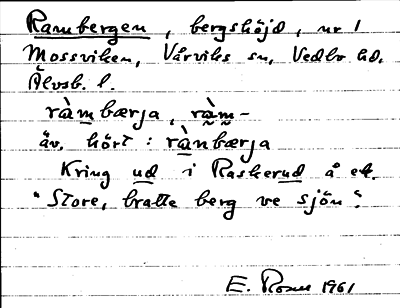 Rambergen, bergshöjd, nr 1
Mossviken, Vårviks sn, Vedbo hd.
Älvsb. l.
ràmbærja, ràm-
äv. hört: rànbærja
Kring ud i Raskerud å ett.
"Store, bratte berg ve sjön".
E. 1961